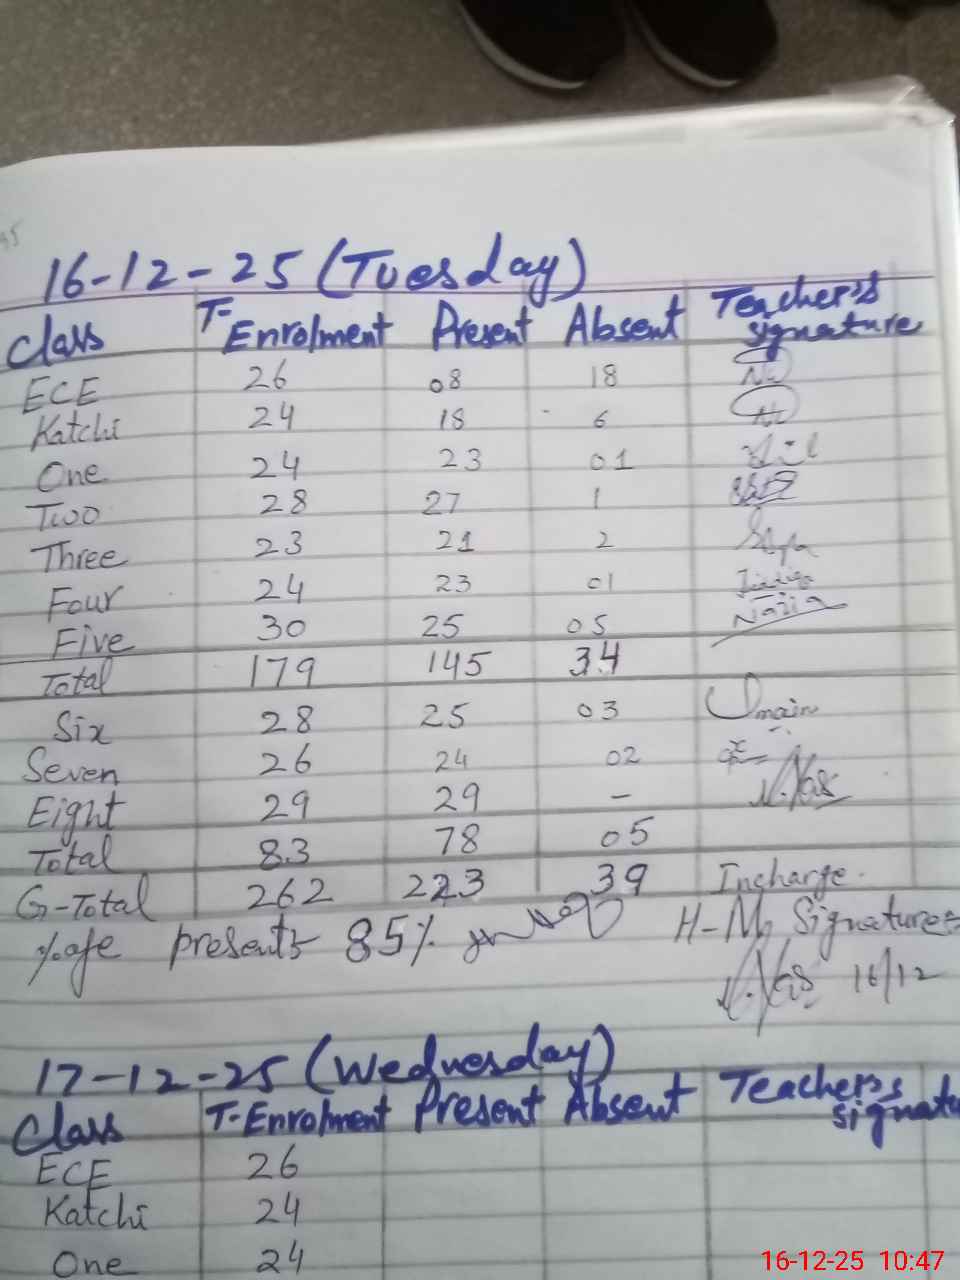 16-12-25 (Tuesday)
Class T-Enrolment Present Absent Teacher's signature
ECE 26 08 18
Katchi 24 18 6
One 24 23 01
Two 28 27 1
Three 23 21 2
Four 24 23 01
Five 30 25 05 Nazia
Total 179 145 34
Six 28 25 03
Seven 26 24 02
Eight 29 29 -
Total 83 78 05
G-Total 262 223 39 Incharge.
%age presents 85% H-M Signatures
16/12
17-12-25 (Wednesday)
Class T-Enrolment Present Absent Teacher's signatu
ECE 26
Katchi 24
One 24
16-12-25 10:47